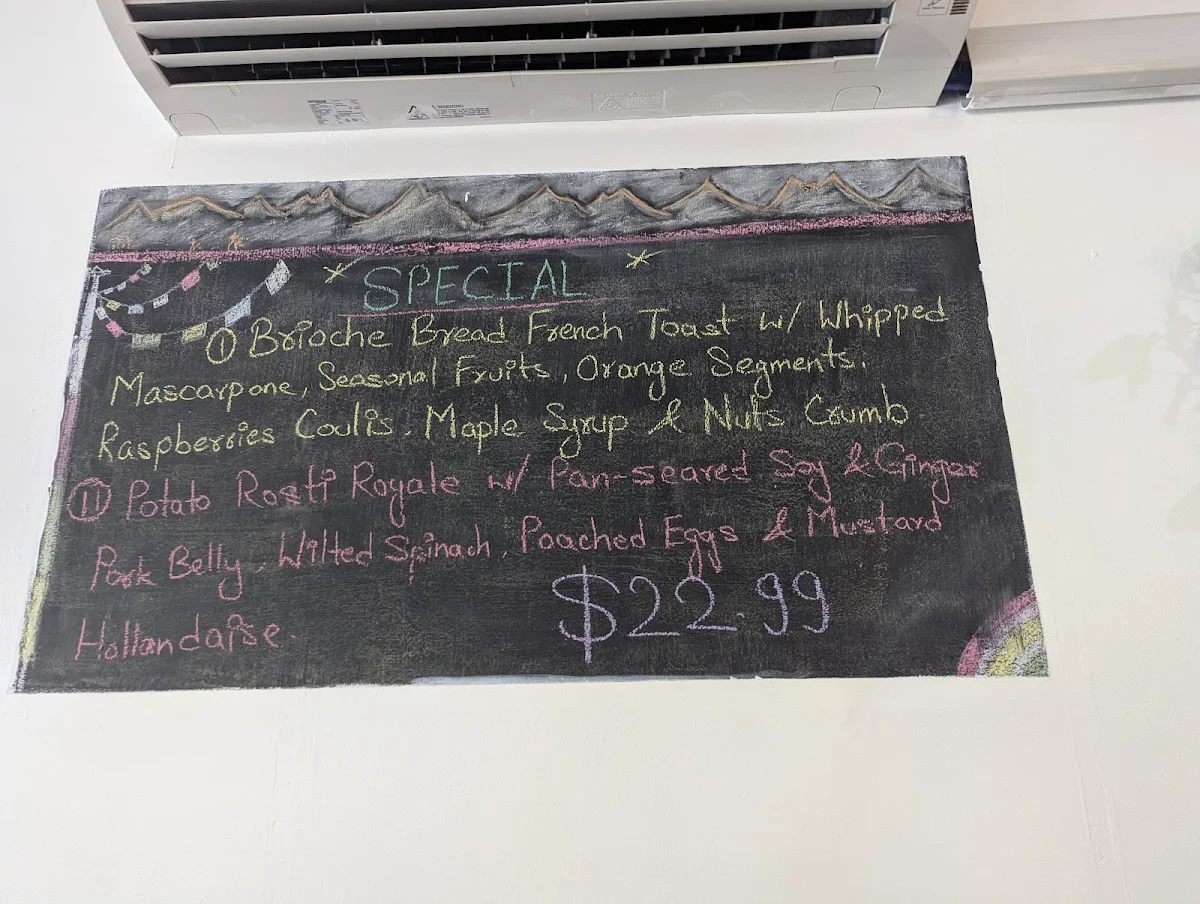 SPECIAL
① Brioche Bread French Toast w/ Whipped
Mascarpone, Seasonal Fruits, Orange Segments,
Raspberries Coulis, Maple Syrup & Nuts Crumb
⑪ Potato Rosti Royale w/ Pan-seared Soy & Ginger
Pork Belly, Wilted Spinach, Poached Eggs & Mustard
Hollandaise.
$22.99